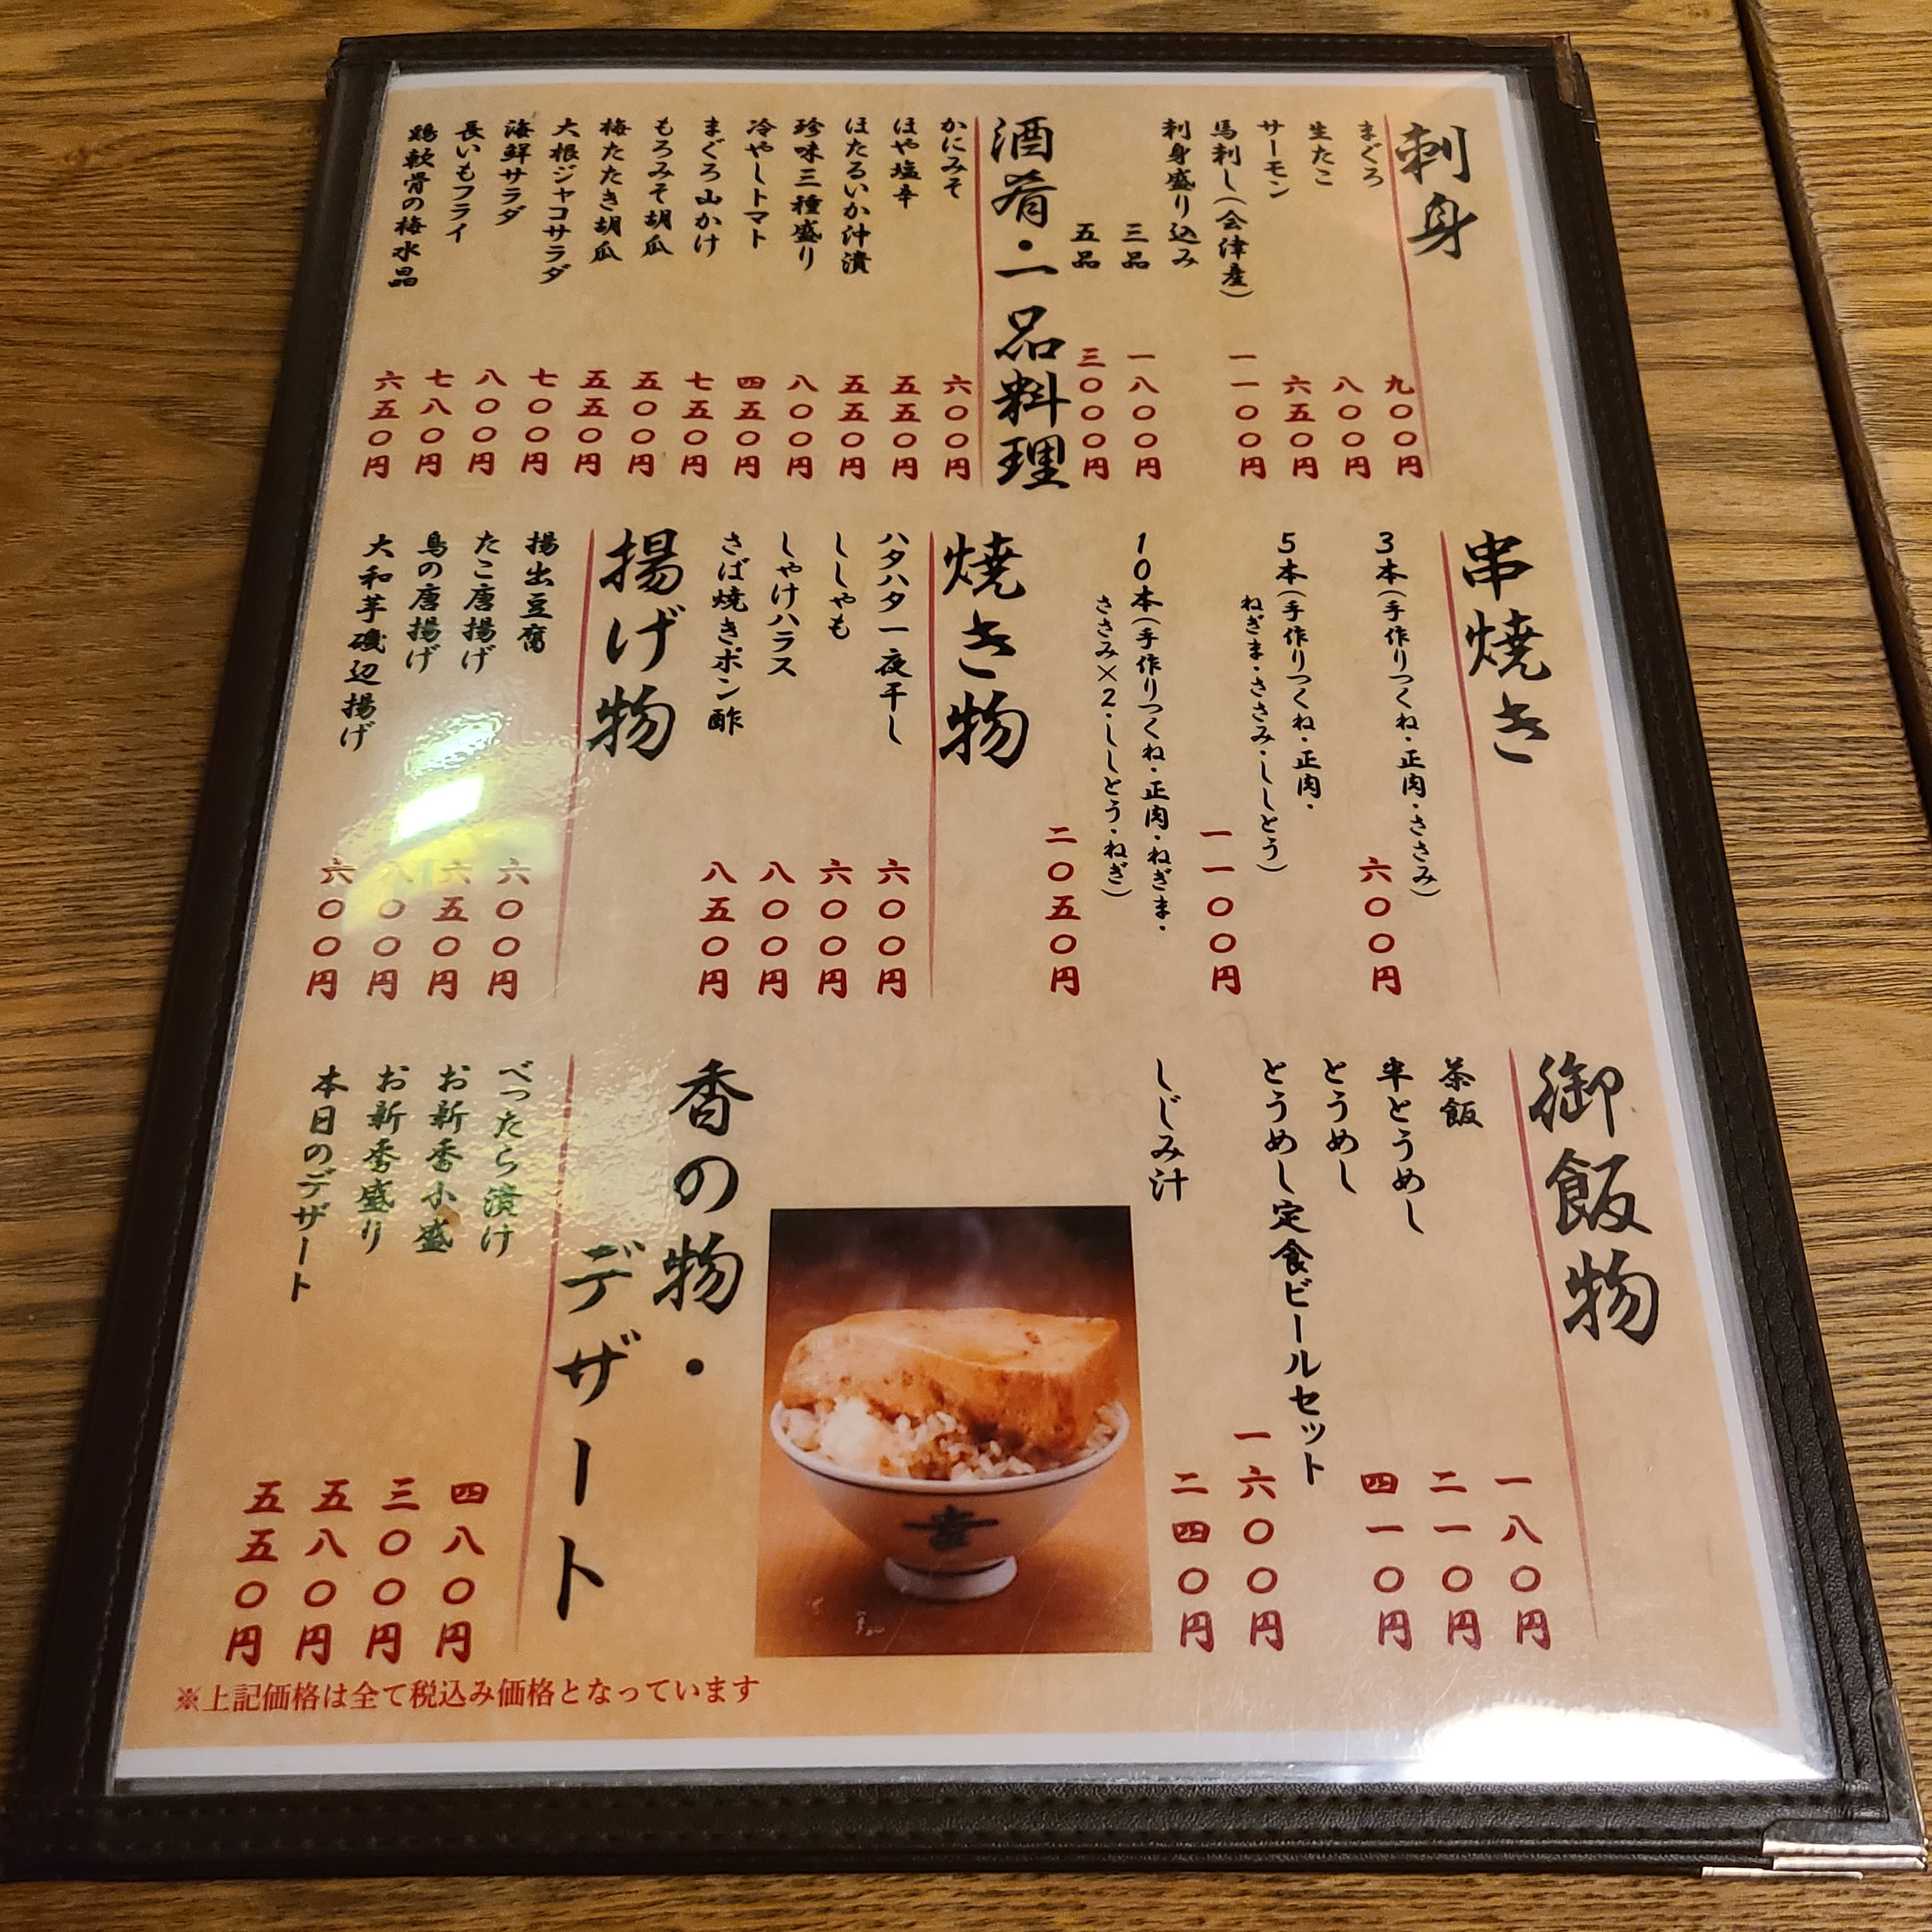 刺身
まぐろ 九〇〇円
生たこ 八〇〇円
サーモン 六五〇円
馬刺し(会津産) 一一〇〇円
刺身盛り込み
三品 一八〇〇円
五品 三〇〇〇円
酒肴・一品料理
かにみそ 六〇〇円
ほや塩辛 五五〇円
ほたるいか沖漬 五五〇円
珍味三種盛り 八〇〇円
冷やしトマト 四五〇円
まぐろ山かけ 七五〇円
もろみそ胡瓜 五〇〇円
梅たたき胡瓜 五五〇円
大根ジャコサラダ 七〇〇円
海鮮サラダ 八〇〇円
長いもフライ 七八〇円
鶏軟骨の梅水晶 六五〇円
串焼き
3本(手作りつくね・正肉・ささみ)
六〇〇円
5本(手作りつくね・正肉・
ねぎま・ささみ・ししとう)
一一〇〇円
10本(手作りつくね・正肉・ねぎま・
ささみ×2・ししとう・ねぎ)
二〇五〇円
焼き物
ハタハタ一夜干し 六〇〇円
ししゃも 六〇〇円
しゃけハラス 八〇〇円
さば焼きポン酢 八五〇円
揚げ物
揚出豆腐 六〇〇円
たこ唐揚げ 六五〇円
鳥の唐揚げ 八〇〇円
大和芋磯辺揚げ 六〇〇円
御飯物
茶飯 一八〇円
半とうめし 二一〇円
とうめし 四一〇円
とうめし定食ビールセット 一六〇〇円
しじみ汁 二四〇円
香の物・
デザート
べったら漬け 四八〇円
お新香小盛 三〇〇円
お新香盛り 五八〇円
本日のデザート 五五〇円
※上記価格は全て税込み価格となっています